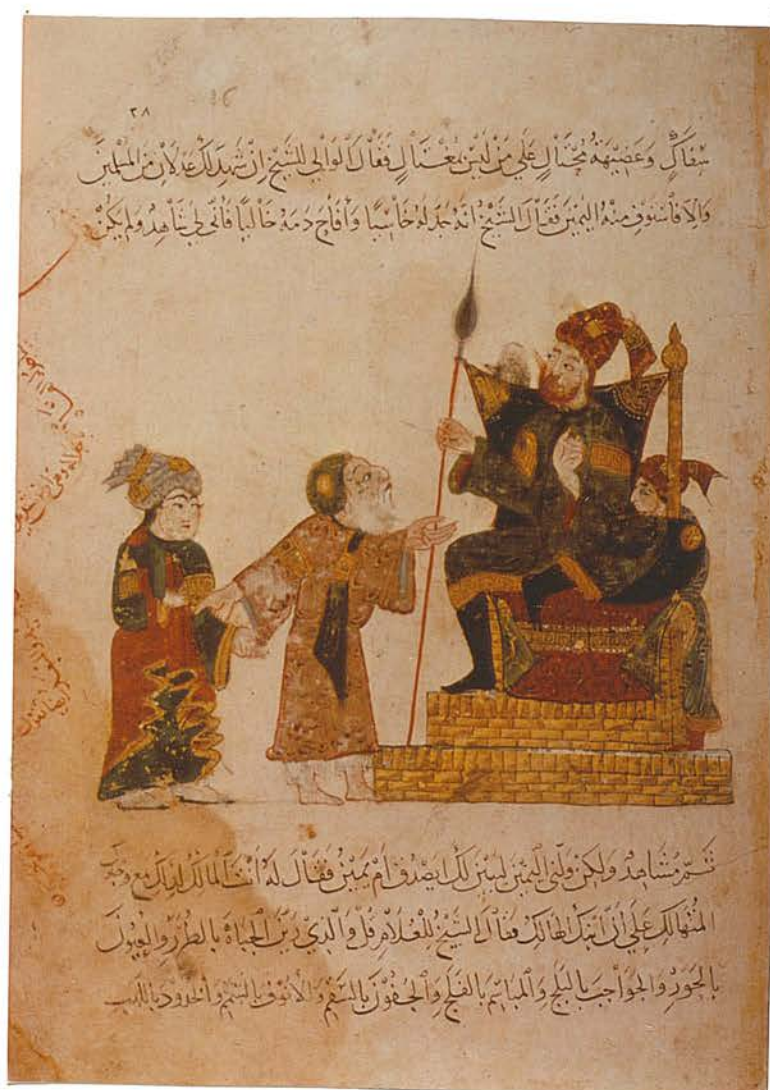 ٣٨
سفاك وعضيهة محتال علي من ليس بمغتال فقال الوالي للشيخ ان شهد لك عدلان من المسلمين
والا فاستوف منه اليمين فقال الشيخ انه جدله خاسيا وأفاح دمه خاليا فأني لي شاهد ولم يكن
ثم مشاهد ولكن ولني اليمين ليبين لك ايصدق ام يمين فقال له أنت المالك لذلك مع وجدك
المتهالك علي ابنك الهالك فقال الشيخ للغلام قل والذي زين الجباه بالطرر والعيون
بالحور والحواجب بالبلج والمباسم بالفلج والجفون بالسقم والأنوف بالشمم والخدود باللهب